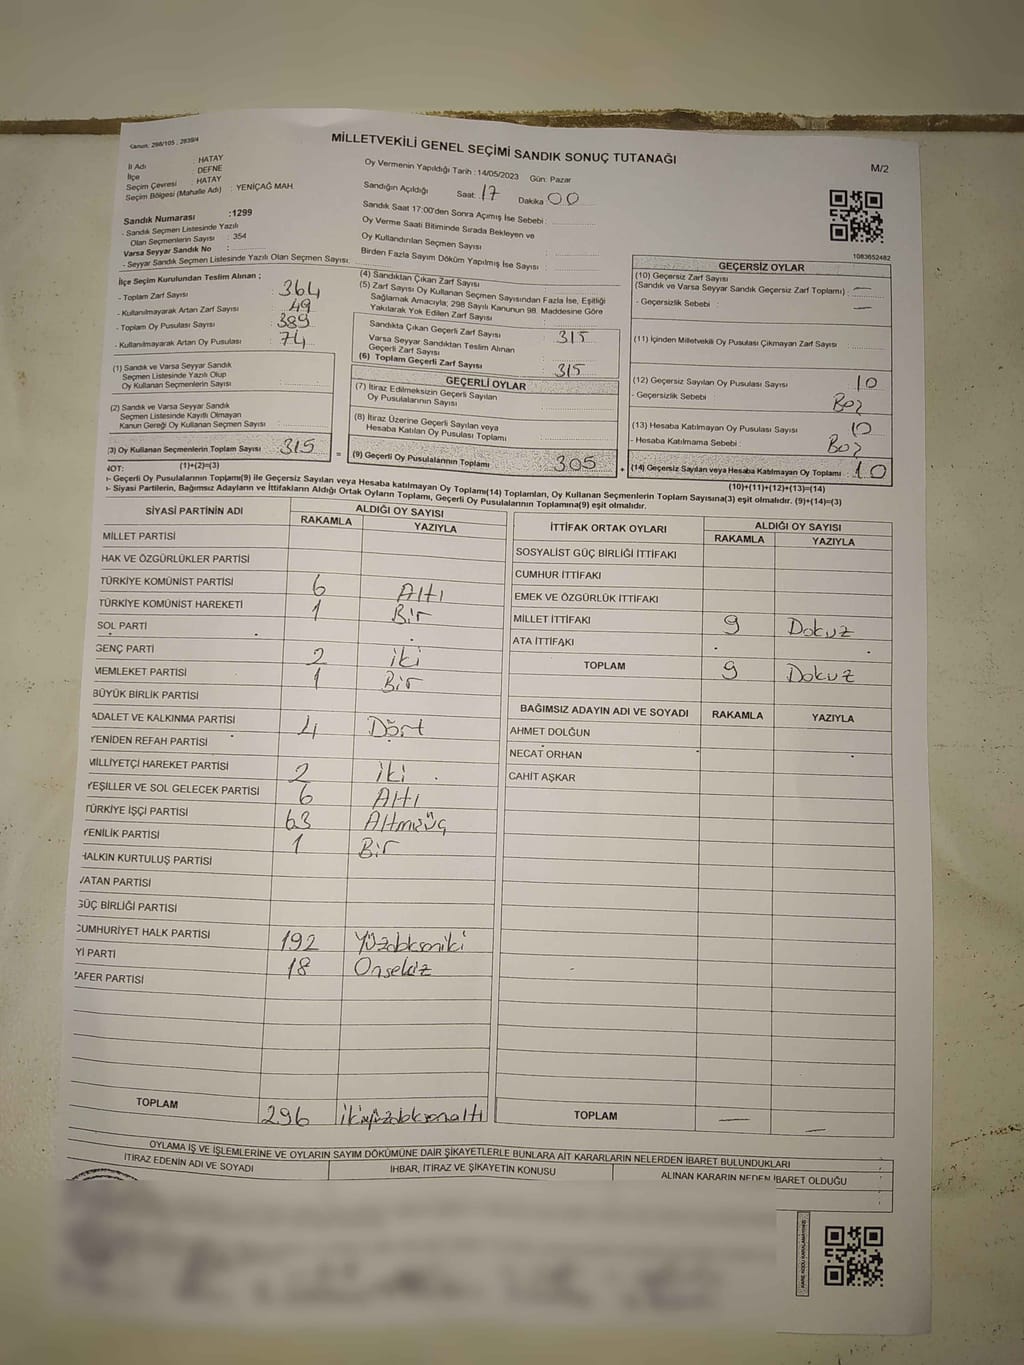 Kanun: 298/105 ; 2839/4
MİLLETVEKİLİ GENEL SEÇİMİ SANDIK SONUÇ TUTANAĞI
M/2
İl Adı : HATAY
İlçe : DEFNE
Seçim Çevresi : HATAY
Seçim Bölgesi (Mahalle Adı) : YENİÇAĞ MAH.
Sandık Numarası : 1299
- Sandık Seçmen Listesinde Yazılı
Olan Seçmenlerin Sayısı : 354
Varsa Seyyar Sandık No :
- Seyyar Sandık Seçmen Listesinde Yazılı Olan Seçmen Sayısı:
Oy Vermenin Yapıldığı Tarih : 14/05/2023 Gün: Pazar
Sandığın Açıldığı Saat: 17 Dakika 00
Sandık Saat 17:00'den Sonra Açımış İse Sebebi :
Oy Verme Saati Bitiminde Sırada Bekleyen ve
Oy Kullandırılan Seçmen Sayısı
Birden Fazla Sayım Döküm Yapılmış İse Sayısı :
1083652482
İlçe Seçim Kurulundan Teslim Alınan ;
- Toplam Zarf Sayısı : 364
- Kullanılmayarak Artan Zarf Sayısı : 49
- Toplam Oy Pusulası Sayısı : 389
- Kullanılmayarak Artan Oy Pusulası : 74
(1) Sandık ve Varsa Seyyar Sandık
Seçmen Listesinde Yazılı Olup
Oy Kullanan Seçmenlerin Sayısı :
(2) Sandık ve Varsa Seyyar Sandık
Seçmen Listesinde Kayıtlı Olmayan
Kanun Gereği Oy Kullanan Seçmen Sayısı :
(3) Oy Kullanan Seçmenlerin Toplam Sayısı : 315
(1)+(2)=(3)
(4) Sandıktan Çıkan Zarf Sayısı
(5) Zarf Sayısı Oy Kullanan Seçmen Sayısından Fazla İse, Eşitliği
Sağlamak Amacıyla; 298 Sayılı Kanunun 98. Maddesine Göre
Yakılarak Yok Edilen Zarf Sayısı :
Sandıkta Çıkan Geçerli Zarf Sayısı : 315
Varsa Seyyar Sandıktan Teslim Alınan
Geçerli Zarf Sayısı :
(6) Toplam Geçerli Zarf Sayısı : 315
GEÇERLİ OYLAR
(7) İtiraz Edilmeksizin Geçerli Sayılan
Oy Pusulalarının Sayısı :
(8) İtiraz Üzerine Geçerli Sayılan veya
Hesaba Katılan Oy Pusulası Toplamı :
= (9) Geçerli Oy Pusulalarının Toplamı : 305
GEÇERSİZ OYLAR
(10) Geçersiz Zarf Sayısı
(Sandık ve Varsa Seyyar Sandık Geçersiz Zarf Toplamı) : —
- Geçersizlik Sebebi : —
(11) İçinden Milletvekili Oy Pusulası Çıkmayan Zarf Sayısı :
(12) Geçersiz Sayılan Oy Pusulası Sayısı : 10
- Geçersizlik Sebebi : Boş
(13) Hesaba Katılmayan Oy Pusulası Sayısı : 10
- Hesaba Katılmama Sebebi : Boş
+ (14) Geçersiz Sayılan veya Hesaba Katılmayan Oy Toplamı : 10
(10)+(11)+(12)+(13)=(14)
NOT:
- Geçerli Oy Pusulalarının Toplamı(9) ile Geçersiz Sayılan veya Hesaba katılmayan Oy Toplamı(14) Toplamları, Oy Kullanan Seçmenlerin Toplam Sayısına(3) eşit olmalıdır. (9)+(14)=(3)
- Siyasi Partilerin, Bağımsız Adayların ve İttifakların Aldığı Ortak Oyların Toplamı, Geçerli Oy Pusulalarının Toplamına(9) eşit olmalıdır.
SİYASİ PARTİNİN ADI ALDIĞI OY SAYISI
RAKAMLA YAZIYLA
MİLLET PARTİSİ
HAK VE ÖZGÜRLÜKLER PARTİSİ
TÜRKİYE KOMÜNİST PARTİSİ 6 Altı
TÜRKİYE KOMÜNİST HAREKETİ 1 Bir
SOL PARTİ
GENÇ PARTİ 2 iki
MEMLEKET PARTİSİ 1 Bir
BÜYÜK BİRLİK PARTİSİ
ADALET VE KALKINMA PARTİSİ 4 Dört
YENİDEN REFAH PARTİSİ
MİLLİYETÇİ HAREKET PARTİSİ 2 iki
YEŞİLLER VE SOL GELECEK PARTİSİ 6 Altı
TÜRKİYE İŞÇİ PARTİSİ 63 Altmışüç
YENİLİK PARTİSİ 1 Bir
HALKIN KURTULUŞ PARTİSİ
VATAN PARTİSİ
GÜÇ BİRLİĞİ PARTİSİ
CUMHURİYET HALK PARTİSİ 192 Yüzdoksaniki
İYİ PARTİ 18 Onsekiz
ZAFER PARTİSİ
TOPLAM 296 ikiyüzdoksanaltı
İTTİFAK ORTAK OYLARI ALDIĞI OY SAYISI
RAKAMLA YAZIYLA
SOSYALİST GÜÇ BİRLİĞİ İTTİFAKI
CUMHUR İTTİFAKI
EMEK VE ÖZGÜRLÜK İTTİFAKI
MİLLET İTTİFAKI 9 Dokuz
ATA İTTİFAKI
TOPLAM 9 Dokuz
BAĞIMSIZ ADAYIN ADI VE SOYADI RAKAMLA YAZIYLA
AHMET DOLĞUN
NECAT ORHAN
CAHİT AŞKAR
TOPLAM — —
OYLAMA İŞ VE İŞLEMLERİNE VE OYLARIN SAYIM DÖKÜMÜNE DAİR ŞİKAYETLERLE BUNLARA AİT KARARLARIN NELERDEN İBARET BULUNDUKLARI
İTİRAZ EDENİN ADI VE SOYADI İHBAR, İTİRAZ VE ŞİKAYETİN KONUSU ALINAN KARARIN NEDEN İBARET OLDUĞU